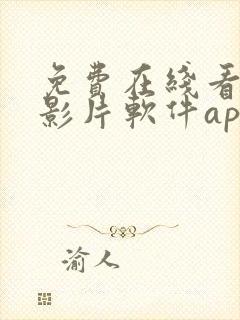 免費在綫看
影片軟件ap
渝人